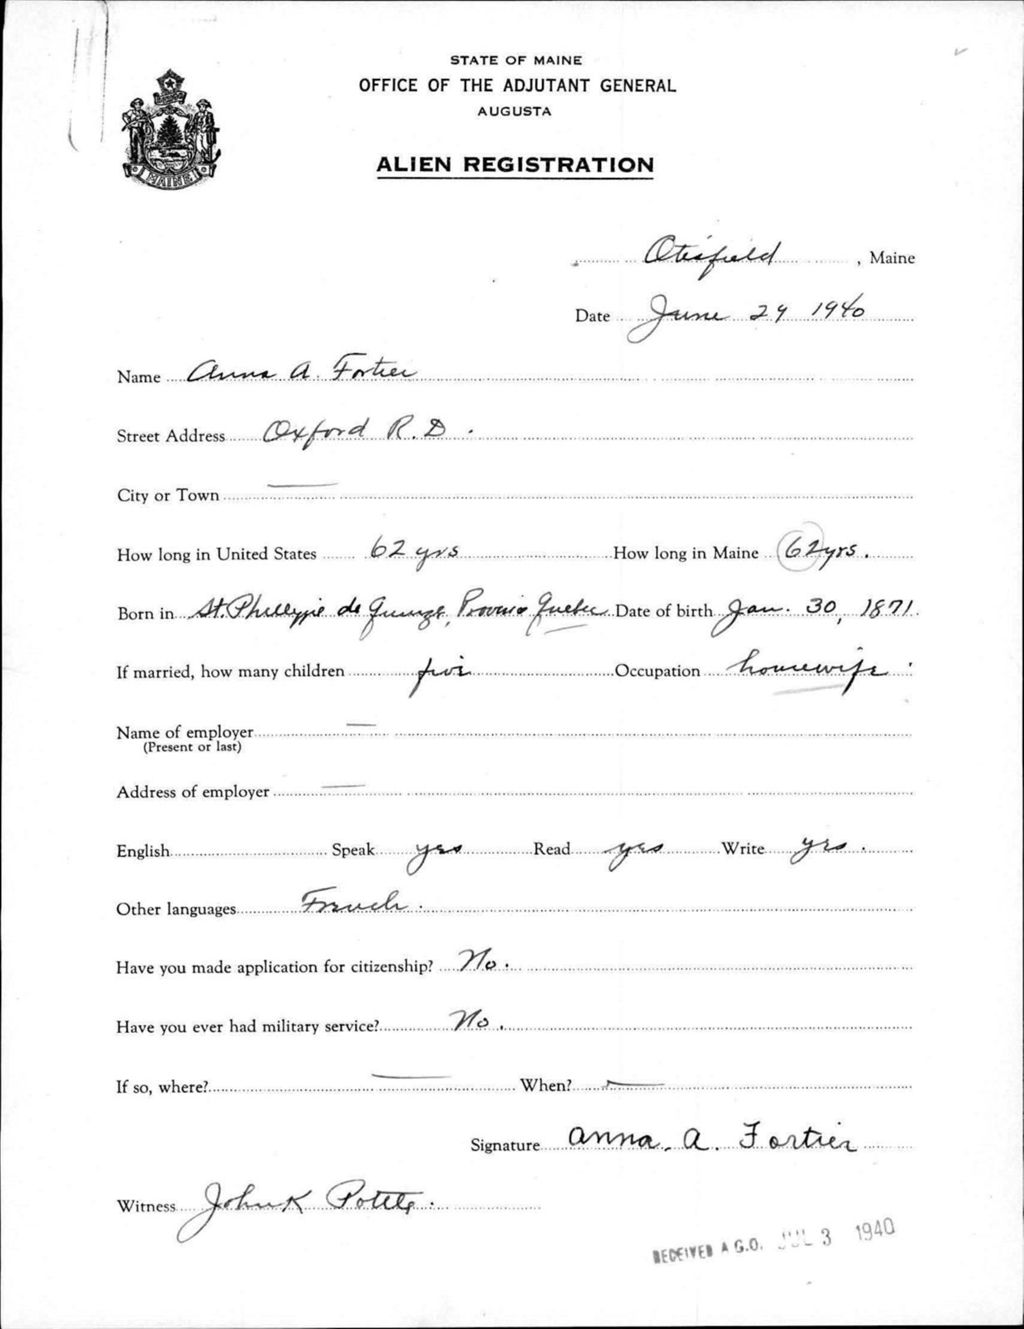 STATE OF MAINE
OFFICE OF THE ADJUTANT GENERAL
AUGUSTA
MAINE
ALIEN REGISTRATION
Otisfield, Maine
Date June 29 1940
Name Anna A. Fortier
Street Address Oxford R.D.
City or Town
How long in United States 62 yrs How long in Maine 62 yrs.
Born in St. Date of birth Jan. 30, 1871.
If married, how many children five Occupation housewife
Name of employer
(Present or last)
Address of employer
English Speak yes Read yes Write yes.
Other languages French.
Have you made application for citizenship? No.
Have you ever had military service? No.
If so, where? When?
Signature Anna. A. Fortier
Witness John K Pottle.
RECEIVED A G.O. JUL 3 1940